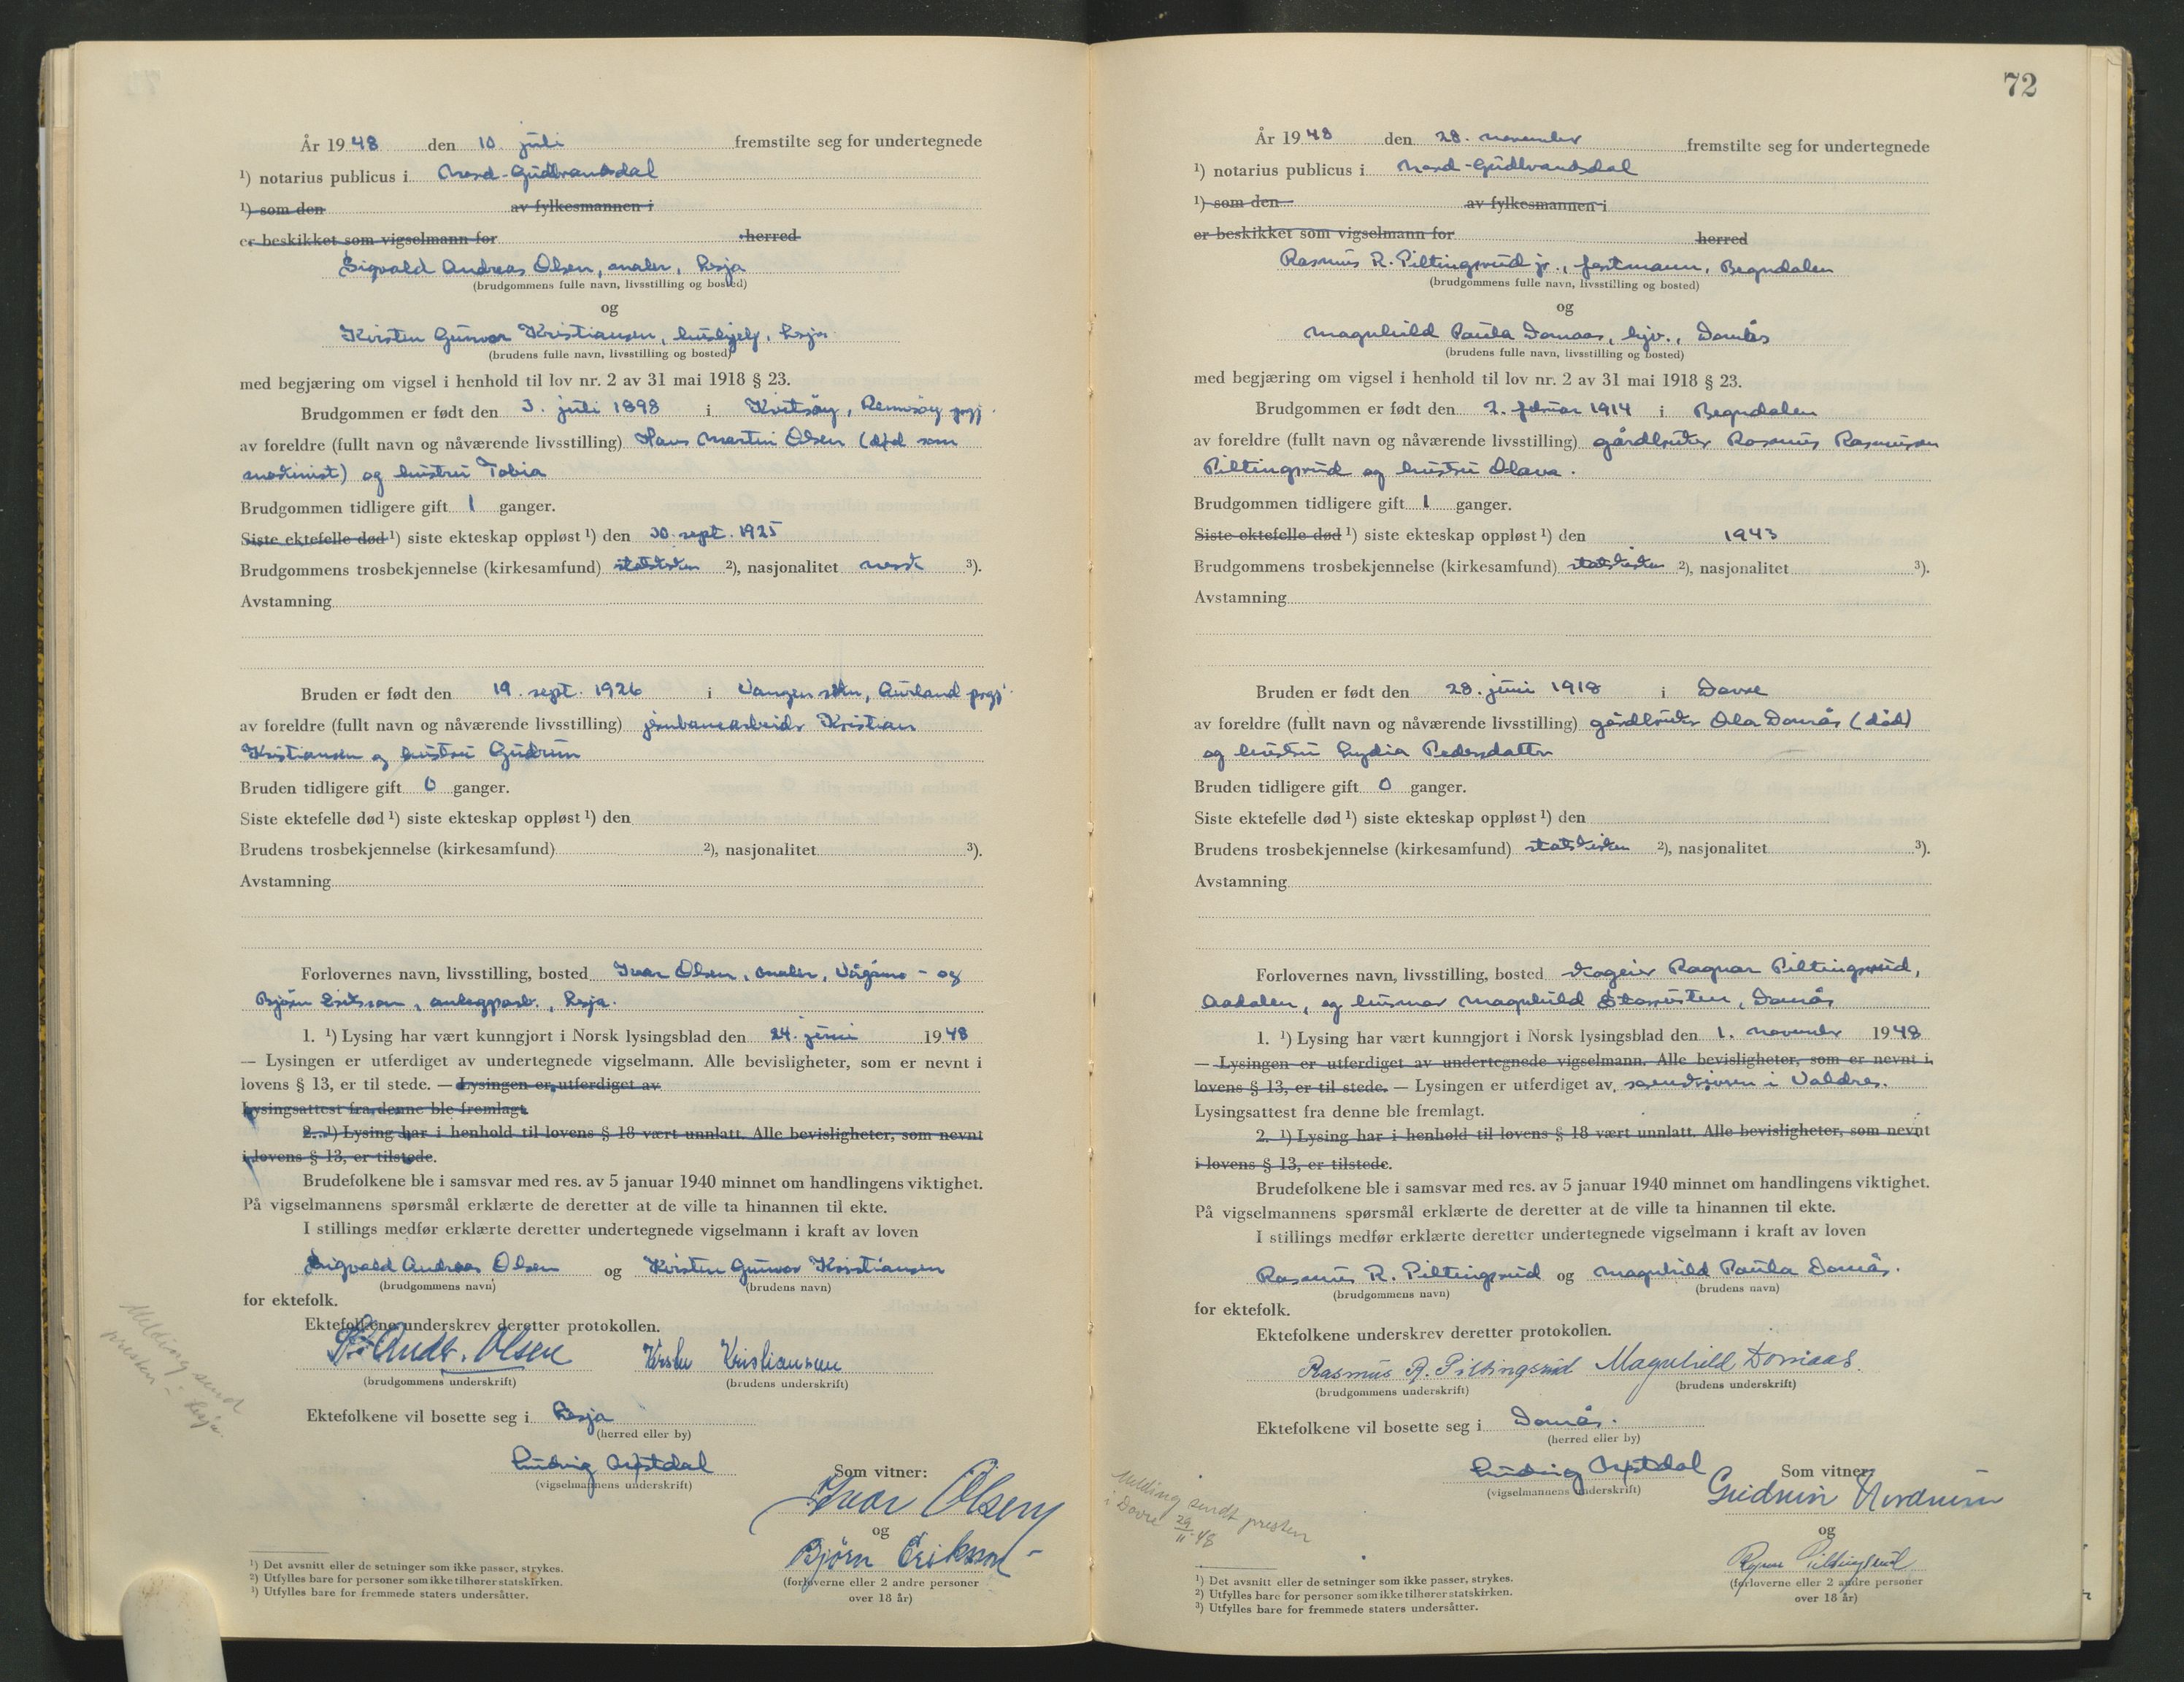 År 1948 den 10 juli fremstilte seg for undertegnede
¹) notarius publicus i Nord-Gudbrandsdal
¹) som den av fylkesmannen i
er beskikket som vigselmann for herred
Sigvald Andreas Olsen, maler, Lesja
(brudgommens fulle navn, livsstilling og bosted)
og
Kirsten Gunvor Kristiansen, hushjelp, Lesja
(brudens fulle navn, livsstilling og bosted)
med begjæring om vigsel i henhold til lov nr. 2 av 31 mai 1918 § 23.
Brudgommen er født den 3. juli 1898 i Kvitsøy, Rennesøy prgj.
av foreldre (fullt navn og nåværende livsstilling) Hans Martin Olsen (død som
maskinist) og hustru Tobia
Brudgommen tidligere gift 1 ganger.
Siste ektefelle død ¹) siste ekteskap oppløst ¹) den 30. sept. 1925
Brudgommens trosbekjennelse (kirkesamfund) statskirken ²), nasjonalitet norsk ³).
Avstamning
Bruden er født den 19. sept. 1926 i Vangen sokn, Aurland prgj.
av foreldre (fullt navn og nåværende livsstilling) jernbanearbeider Kristian
Kristiansen og hustru Gudrun
Bruden tidligere gift 0 ganger.
Siste ektefelle død ¹) siste ekteskap oppløst ¹) den
Brudens trosbekjennelse (kirkesamfund) ²), nasjonalitet ³).
Avstamning
Forlovernes navn, livsstilling, bosted Ivar Olsen, maler, Vågåmo - og
Bjørn Eriksson, anleggsarb., Lesja.
1. ¹) Lysing har vært kunngjort i Norsk lysingsblad den 24. juni 1948
— Lysingen er utferdiget av undertegnede vigselmann. Alle bevisligheter, som er nevnt i
lovens § 13, er til stede. — Lysingen er utferdiget av
Lysingsattest fra denne ble fremlagt.
2. ¹) Lysing har i henhold til lovens § 18 vært unnlatt. Alle bevisligheter, som nevnt
i lovens § 13, er tilstede.
Brudefolkene ble i samsvar med res. av 5 januar 1940 minnet om handlingens viktighet.
På vigselmannens spørsmål erklærte de deretter at de ville ta hinannen til ekte.
I stillings medfør erklærte deretter undertegnede vigselmann i kraft av loven
Sigvald Andreas Olsen og Kirsten Gunvor Kristiansen
(brudgommens navn) (brudens navn)
for ektefolk.
Ektefolkene underskrev deretter protokollen.
S. Andr. Olsen Kirsten Kristiansen
(brudgommens underskrift) (brudens underskrift)
Melding send
presten i Lesja.
Ektefolkene vil bosette seg i Lesja
(herred eller by)
Ludvig
(vigselmannens underskrift)
Som vitner:
Ivar Olsen
og
Bjørn Eriksson
(forloverne eller 2 andre personer
over 18 år)
¹) Det avsnitt eller de setninger som ikke passer, strykes.
²) Utfylles bare for personer som ikke tilhører statskirken.
³) Utfylles bare for fremmede staters undersåtter.
72
År 1948 den 28. november fremstilte seg for undertegnede
¹) notarius publicus i Nord-Gudbrandsdal
¹) som den av fylkesmannen i
er beskikket som vigselmann for herred
Rasmus R. Piltingsrud jr., forstmann, Begndalen
(brudgommens fulle navn, livsstilling og bosted)
og
Magnhild Paula Domaas, hjv., Dombås
(brudens fulle navn, livsstilling og bosted)
med begjæring om vigsel i henhold til lov nr. 2 av 31 mai 1918 § 23.
Brudgommen er født den 2. februar 1914 i Begndalen
av foreldre (fullt navn og nåværende livsstilling) gårdbruker Rasmus Rasmusen
Piltingsrud og hustru Olava.
Brudgommen tidligere gift 1 ganger.
Siste ektefelle død ¹) siste ekteskap oppløst ¹) den 1943
Brudgommens trosbekjennelse (kirkesamfund) statskirken ²), nasjonalitet ³).
Avstamning
Bruden er født den 28. juni 1918 i Dovre
av foreldre (fullt navn og nåværende livsstilling) gårdbruker Ola Domås (død)
og hustru Lydia Pedersdatter
Bruden tidligere gift 0 ganger.
Siste ektefelle død ¹) siste ekteskap oppløst ¹) den
Brudens trosbekjennelse (kirkesamfund) statskirken ²), nasjonalitet ³).
Avstamning
Forlovernes navn, livsstilling, bosted Ragnar Piltingsrud,
Aadalen, og husmor Magnhild Domås
1. ¹) Lysing har vært kunngjort i Norsk lysingsblad den 1. november 1948
— Lysingen er utferdiget av undertegnede vigselmann. Alle bevisligheter, som er nevnt i
lovens § 13, er til stede. — Lysingen er utferdiget av sorenskriveren i Valdres.
Lysingsattest fra denne ble fremlagt.
2. ¹) Lysing har i henhold til lovens § 18 vært unnlatt. Alle bevisligheter, som nevnt
i lovens § 13, er tilstede.
Brudefolkene ble i samsvar med res. av 5 januar 1940 minnet om handlingens viktighet.
På vigselmannens spørsmål erklærte de deretter at de ville ta hinannen til ekte.
I stillings medfør erklærte deretter undertegnede vigselmann i kraft av loven
Rasmus R. Piltingsrud og Magnhild Paula Domås.
(brudgommens navn) (brudens navn)
for ektefolk.
Ektefolkene underskrev deretter protokollen.
Rasmus R. Piltingsrud Magnhild Domaas.
(brudgommens underskrift) (brudens underskrift)
Ektefolkene vil bosette seg i Domås.
(herred eller by)
Ludvig
(vigselmannens underskrift)
Melding sendt presten
i Dovre 29/11-48
Som vitner:
Gudrun Nordrum
og
Ragnar Piltingsrud
(forloverne eller 2 andre personer
over 18 år)
¹) Det avsnitt eller de setninger som ikke passer, strykes.
²) Utfylles bare for personer som ikke tilhører statskirken.
³) Utfylles bare for fremmede staters undersåtter.